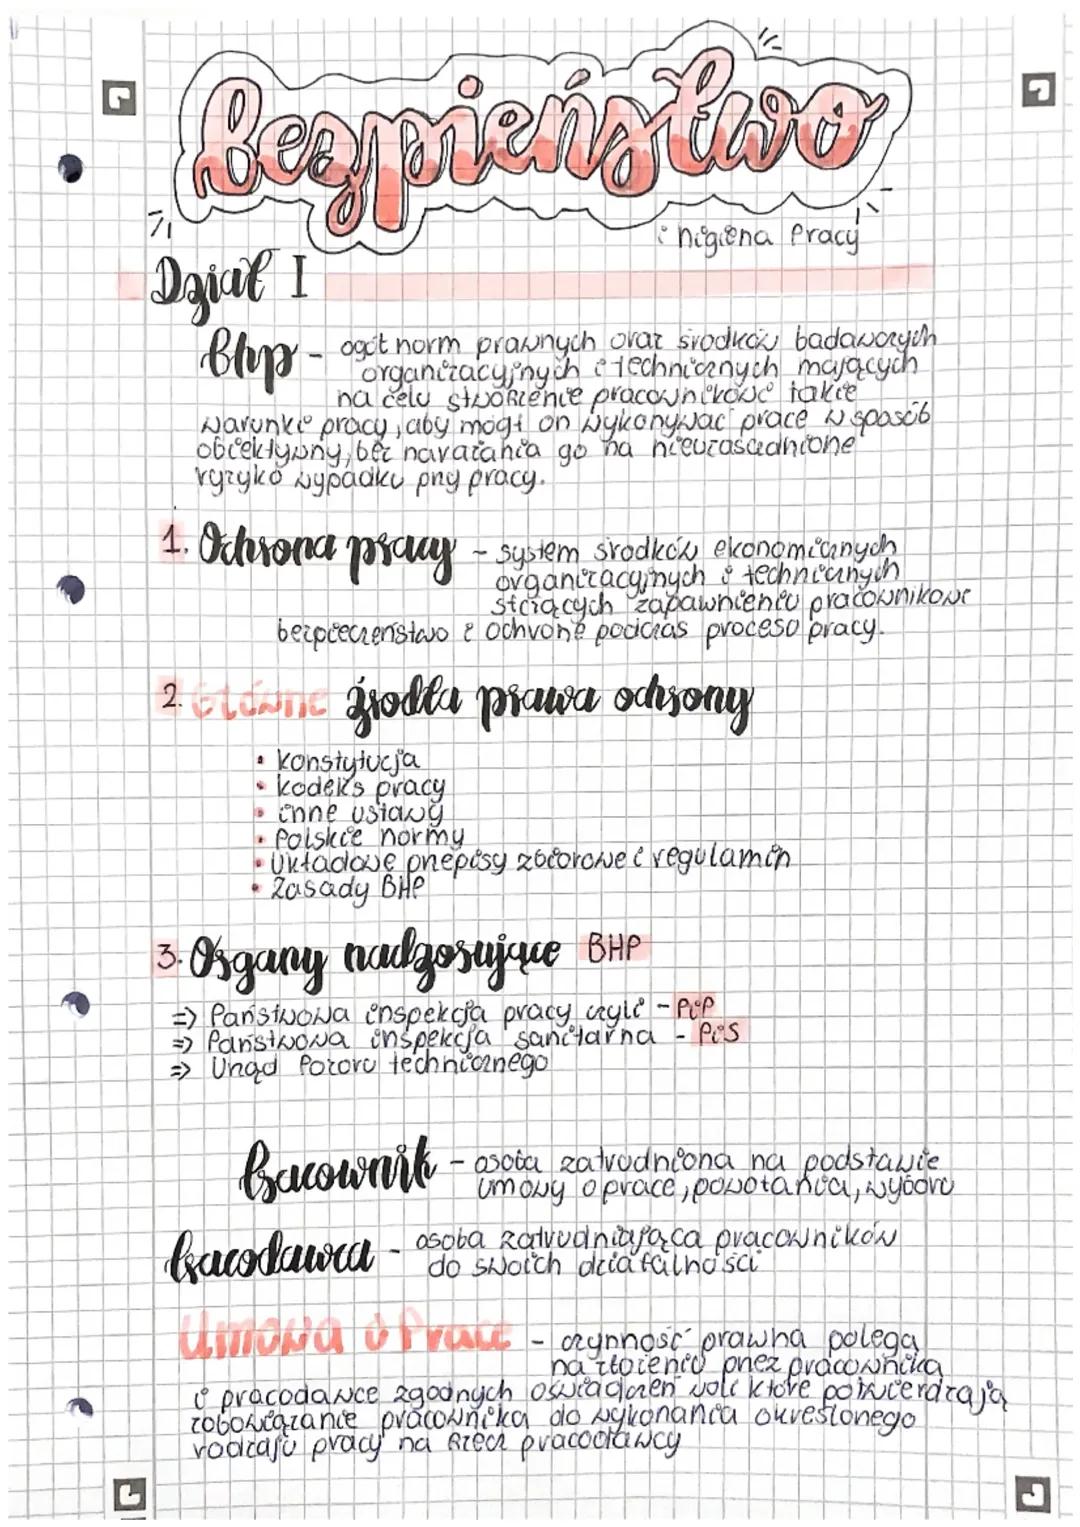 Bezpieństwo
i higiena Pracy
Dział I
Bhp - ogół norm prawnych oraz środków badawczych
organizacyjnych i technicznych mających
na celu stworzenie pracownikowi takie
warunki pracy, aby mógł on wykonywać prace w sposób
obiektywny, bez narażania go na nieuzasadnione
ryzyko wypadku przy pracy.
1. Ochrona pracy - system środków ekonomicznych
organizacyjnych i technicznych
służących zapawnieniu pracownikowi
bezpieczeństwo i ochronę podczas procesu pracy.
2. Główne źrodła prawa ochrony
• konstytucja
• kodeks pracy
• inne ustawy
• Polskie normy
• Układowe przepisy zbiorowe i regulamin
• Zasady BHP
3. Organy nadzorujące BHP
⇒ Państwowa inspekcja pracy czyli - PiP
⇒ Państwowa inspekcja sanitarna - PiS
⇒ Urząd Pozoru technicznego
Pracownik - osoba zatrudniona na podstawie
umowy o prace, powołania, wyboru
Pracodawca - osoba zatrudniająca pracowników
do swoich działalności
Umowa o Prace - czynność prawna polega
na złożeniu przez pracownika
i pracodawce zgodnych oświadczeń woli które potwierdzają
zobowiązanie pracownika do wykonania określonego
rodzaju pracy na rzecz pracodawcy